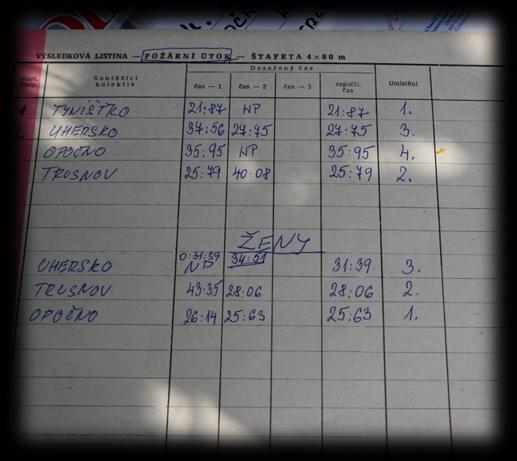 VÝSLEDKOVÁ LISTINA — POŽÁRNÍ ÚTOK — ŠTAFETA 4×80 m
Start. číslo Soutěžící kolektiv Dosažený čas čas — 1 čas — 2 čas — 3 započit. čas Umístění
1 TYNIŠŤKO 21:87 NP 21:87 1.
2. UHERSKO 37:56 27:75 27:75 3.
OPOČNO 35.95 NP 35:95 4.
TRUSNOV 25:79 40:08 25:79 2.
ŽENY
UHERSKO 0:31:39 NP 34:51 31:39 3.
TRUSNOV 43:35 28:06 28:06 2.
OPOČNO 26:14 25:63 25:63 1.